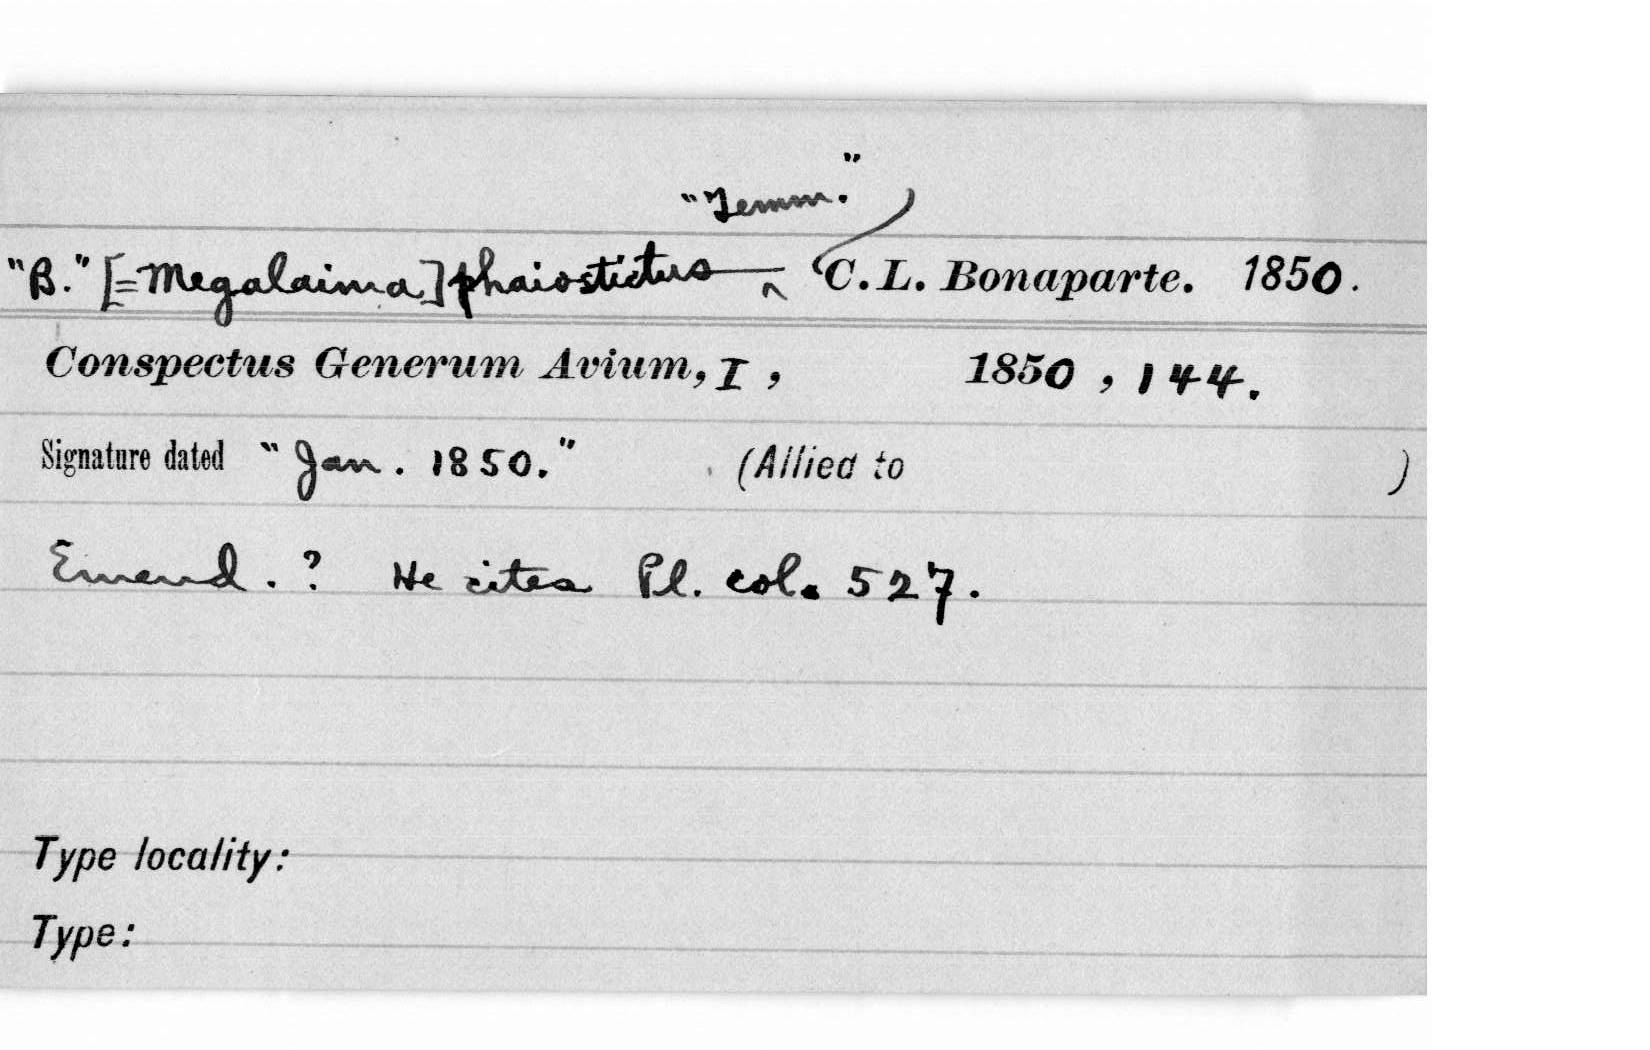 "Temm."
"B." [=Megalaima] phaiostictus — ^ C. L. Bonaparte. 1850.
Conspectus Generum Avium, I, 1850, 144.
Signature dated "Jan. 1850." (Allied to )
Emend.? He cites Pl. col. 527.
Type locality:
Type: